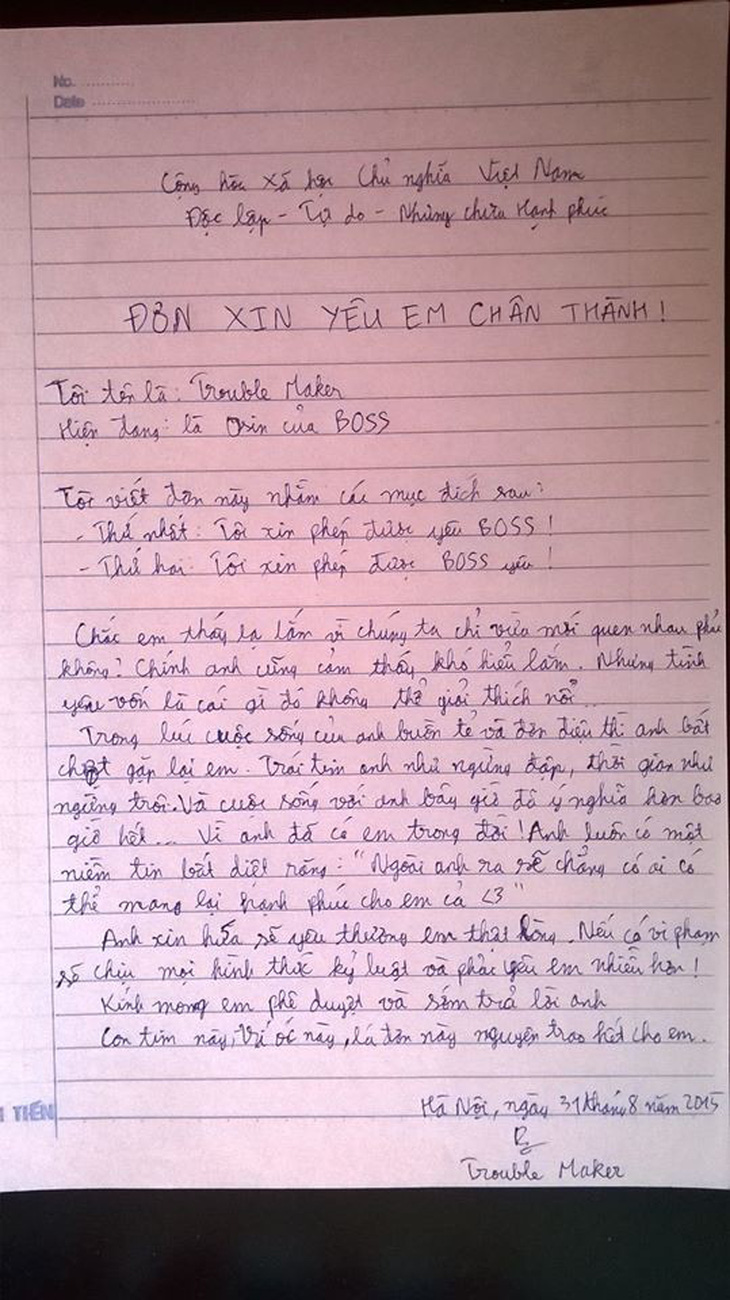 No. ............
Date ......................
Cộng hòa xã hội Chủ nghĩa Việt Nam
Độc lập - Tự do - Nhưng chưa Hạnh phúc
ĐƠN XIN YÊU EM CHÂN THÀNH!
Tôi tên là: Trouble Maker
Hiện đang: là Osin của BOSS
Tôi viết đơn này nhằm các mục đích sau:
- Thứ nhất: Tôi xin phép được yêu BOSS!
- Thứ hai: Tôi xin phép được BOSS yêu!
Chắc em thấy lạ lắm vì chúng ta chỉ vừa mới quen nhau phải
không? Chính anh cũng cảm thấy khó hiểu lắm. Nhưng tình
yêu vốn là cái gì đó không thể giải thích nổi...
Trong lúc cuộc sống của anh buồn tẻ và đơn điệu thì anh bất
chợt gặp lại em. Trái tim anh như ngừng đập, thời gian như
ngừng trôi. Và cuộc sống với anh bây giờ đã ý nghĩa hơn bao
giờ hết... Vì anh đã có em trong đời! Anh luôn có một
niềm tin bất diệt rằng: "Ngoài anh ra sẽ chẳng có ai có
thể mang lại hạnh phúc cho em cả <3"
Anh xin hứa sẽ yêu thương em thật lòng. Nếu có vi phạm
sẽ chịu mọi hình thức kỷ luật và phải yêu em nhiều hơn!
Kính mong em phê duyệt và sớm trả lời anh
Con tim này, trí óc này, lá đơn này nguyện trao hết cho em.
Hà Nội, ngày 31 tháng 8 năm 2015
Trouble Maker
TIẾN